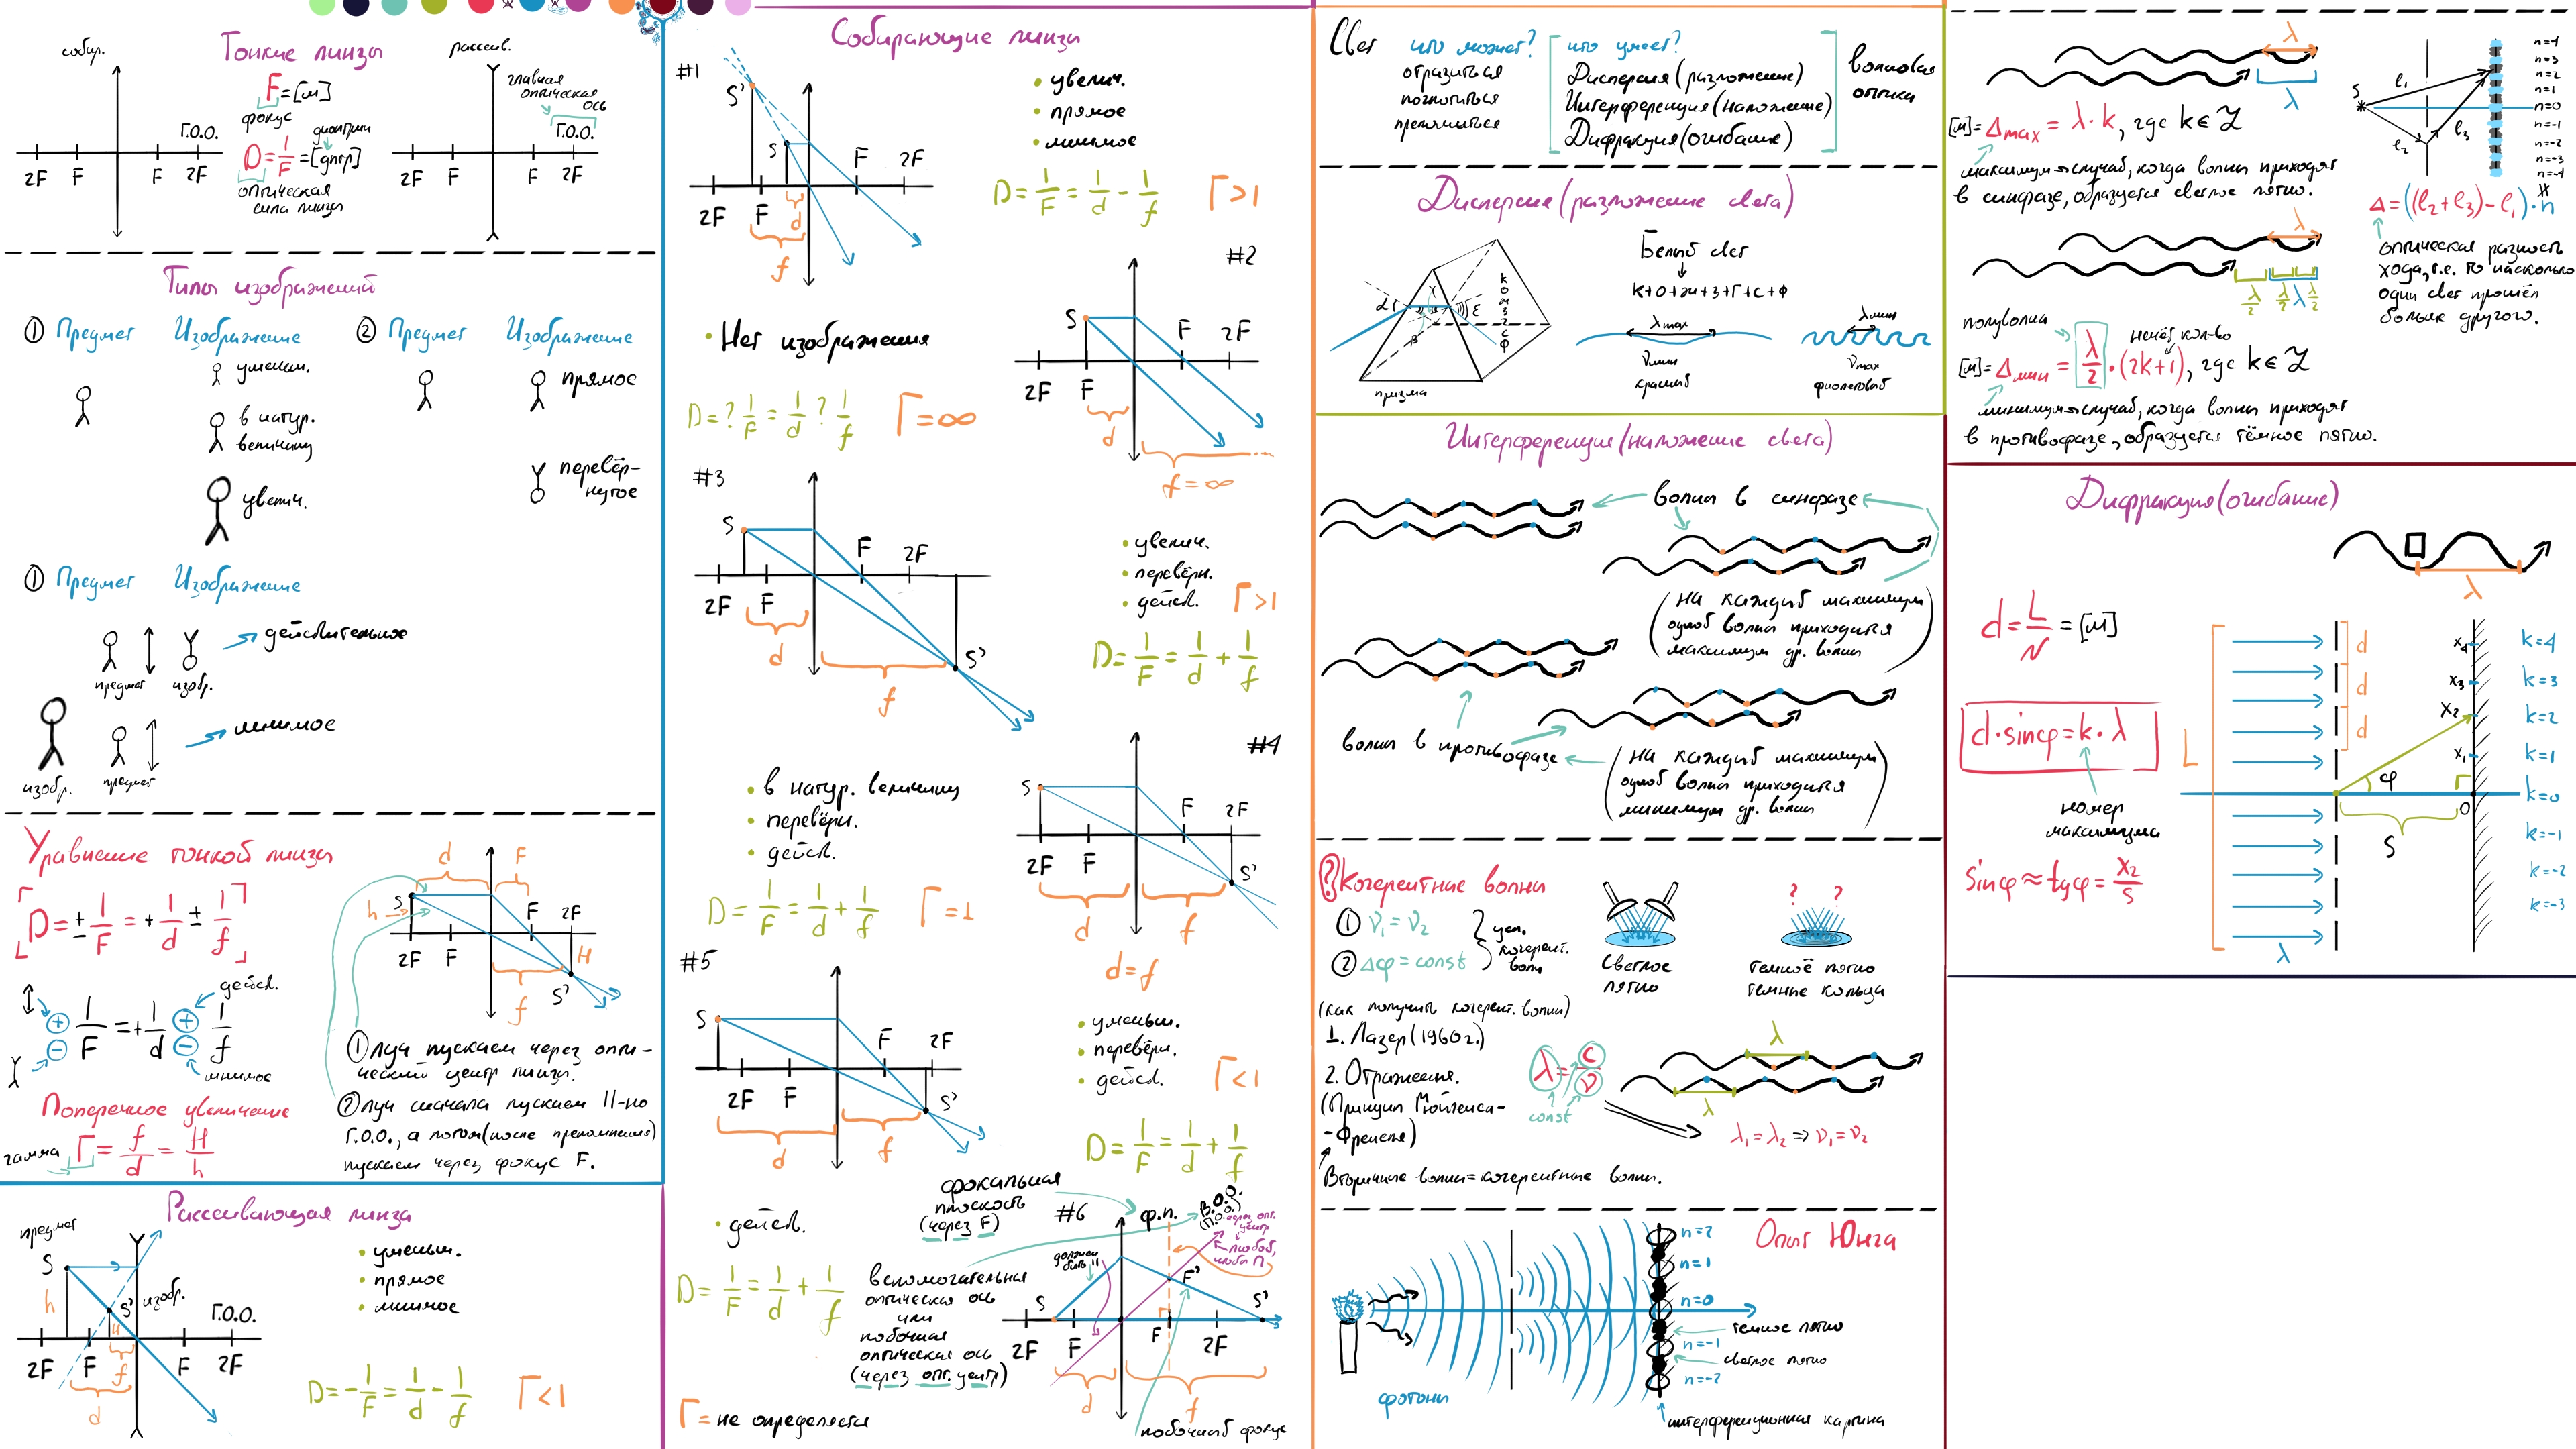 Тонкие линзы
собир.
F=[м]
фокус
диоптрии
D=1/F=[дптр]
оптическая
сила линзы
Г.О.О.
2F F F 2F
рассеив.
главная
оптическая
ось
Г.О.О.
2F F F 2F
Типы изображений
① Предмет Изображение
уменьш.
в натур.
величину
увелич.
② Предмет Изображение
прямое
перевёр-
нутое
① Предмет Изображение
действительное
предмет изобр.
мнимое
изобр. предмет
Уравнение тонкой линзы
D=±1/F=+1/d±1/f
действ.
+ 1/F=+1/d + 1/f
− −
мнимое
d F
S
h
F 2F
2F F
H
f
S'
① луч пускаем через опти-
ческий центр линзы.
② луч сначала пускаем II-но
Г.О.О., а потом (после преломления)
пускаем через фокус F.
Поперечное увеличение
гамма Г=f/d=H/h
Рассеивающая линза
предмет
S
h
S' изобр.
H
Г.О.О.
2F F F 2F
f
d
• уменьш.
• прямое
• мнимое
D=-1/F=1/d-1/f Г<1
Собирающие линзы
#1
S'
S
F 2F
2F F
d
f
• увелич.
• прямое
• мнимое
D=1/F=1/d-1/f Г>1
#2
• Нет изображения
D=?1/F=1/d?1/f Г=∞
S
F 2F
2F F
d
f=∞
#3
S
F 2F
2F F
d
f
S'
• увелич.
• перевёрн.
• действ.
Г>1
D=1/F=1/d+1/f
#4
• в натур. величину
• перевёрн.
• действ.
D=1/F=1/d+1/f Г=1
S
F 2F
2F F
S'
d f
d=f
#5
S
F 2F
2F F
S'
d f
• уменьш.
• перевёрн.
• действ.
Г<1
D=1/F=1/d+1/f
#6
• действ.
D=1/F=1/d+1/f
Г=не определяется
фокальная
плоскость
(через F)
вспомогательная
оптическая ось
или
побочная
оптическая ось
(через опт. центр)
ф.п.
В.О.О.
(П.О.О.)
через опт.
центр
любой,
чтобы II
должен
быть II
S F'
S'
2F F F 2F
d f
побочный фокус
Свет
что может?
отразиться
поглотиться
преломиться
что умеет?
Дисперсия (разложение)
Интерференция (наложение)
Дифракция (огибание)
волновая
оптика
Дисперсия (разложение света)
Белый свет
↓
к+о+ж+з+г+с+ф
к
о
ж
з
г
с
ф
α γ
β ε
призма
λmax
νмин
красный
λмин
νmax
фиолетовый
Интерференция (наложение света)
волны в синфазе
(на каждый максимум
одной волны приходится
максимум др. волны)
волны в противофазе
(на каждый максимум
одной волны приходится
минимум др. волны)
? Когерентные волны
① ν₁=ν₂
② Δφ=const
усл.
когерент.
волн
светлое
пятно
? ?
темное пятно
темные кольца
(как получить когерент. волны)
1. Лазер (1960г.)
2. Отражения.
(Принцип Гюйгенса-
-Френеля)
λ=c/ν
const
λ
λ
λ₁=λ₂=>ν₁=ν₂
Вторичные волны=когерентные волны.
Опыт Юнга
n=2
n=1
n=0
n=-1
n=-2
темное пятно
светлое пятно
фотоны
интерференционная картина
λ
λ
[м]=Δmax=λ·k, где k∈Z
максимум→случай, когда волны приходят
в синфазе, образуется светлое пятно.
λ
λ/2 λ/2 λ λ/2
полуволна
нечёт кол-во
[м]=Δмин=λ/2·(2k+1), где k∈Z
минимум→случай, когда волны приходят
в противофазе, образуется тёмное пятно.
S
l₁
l₂ l₃
n=4
n=3
n=2
n=1
n=0
n=-1
n=-2
n=-3
n=-4
Δ=((l₂+l₃)-l₁)·n
оптическая разность
хода, т.е. то насколько
один свет прошёл
больше другого.
Дифракция (огибание)
λ
d=L/N=[м]
d·sinφ=k·λ
номер
максимума
sinφ≈tgφ=x₂/S
L
λ
d
d
d
x₄
x₃
x₂
x₁
φ
0
S
k=4
k=3
k=2
k=1
k=0
k=-1
k=-2
k=-3